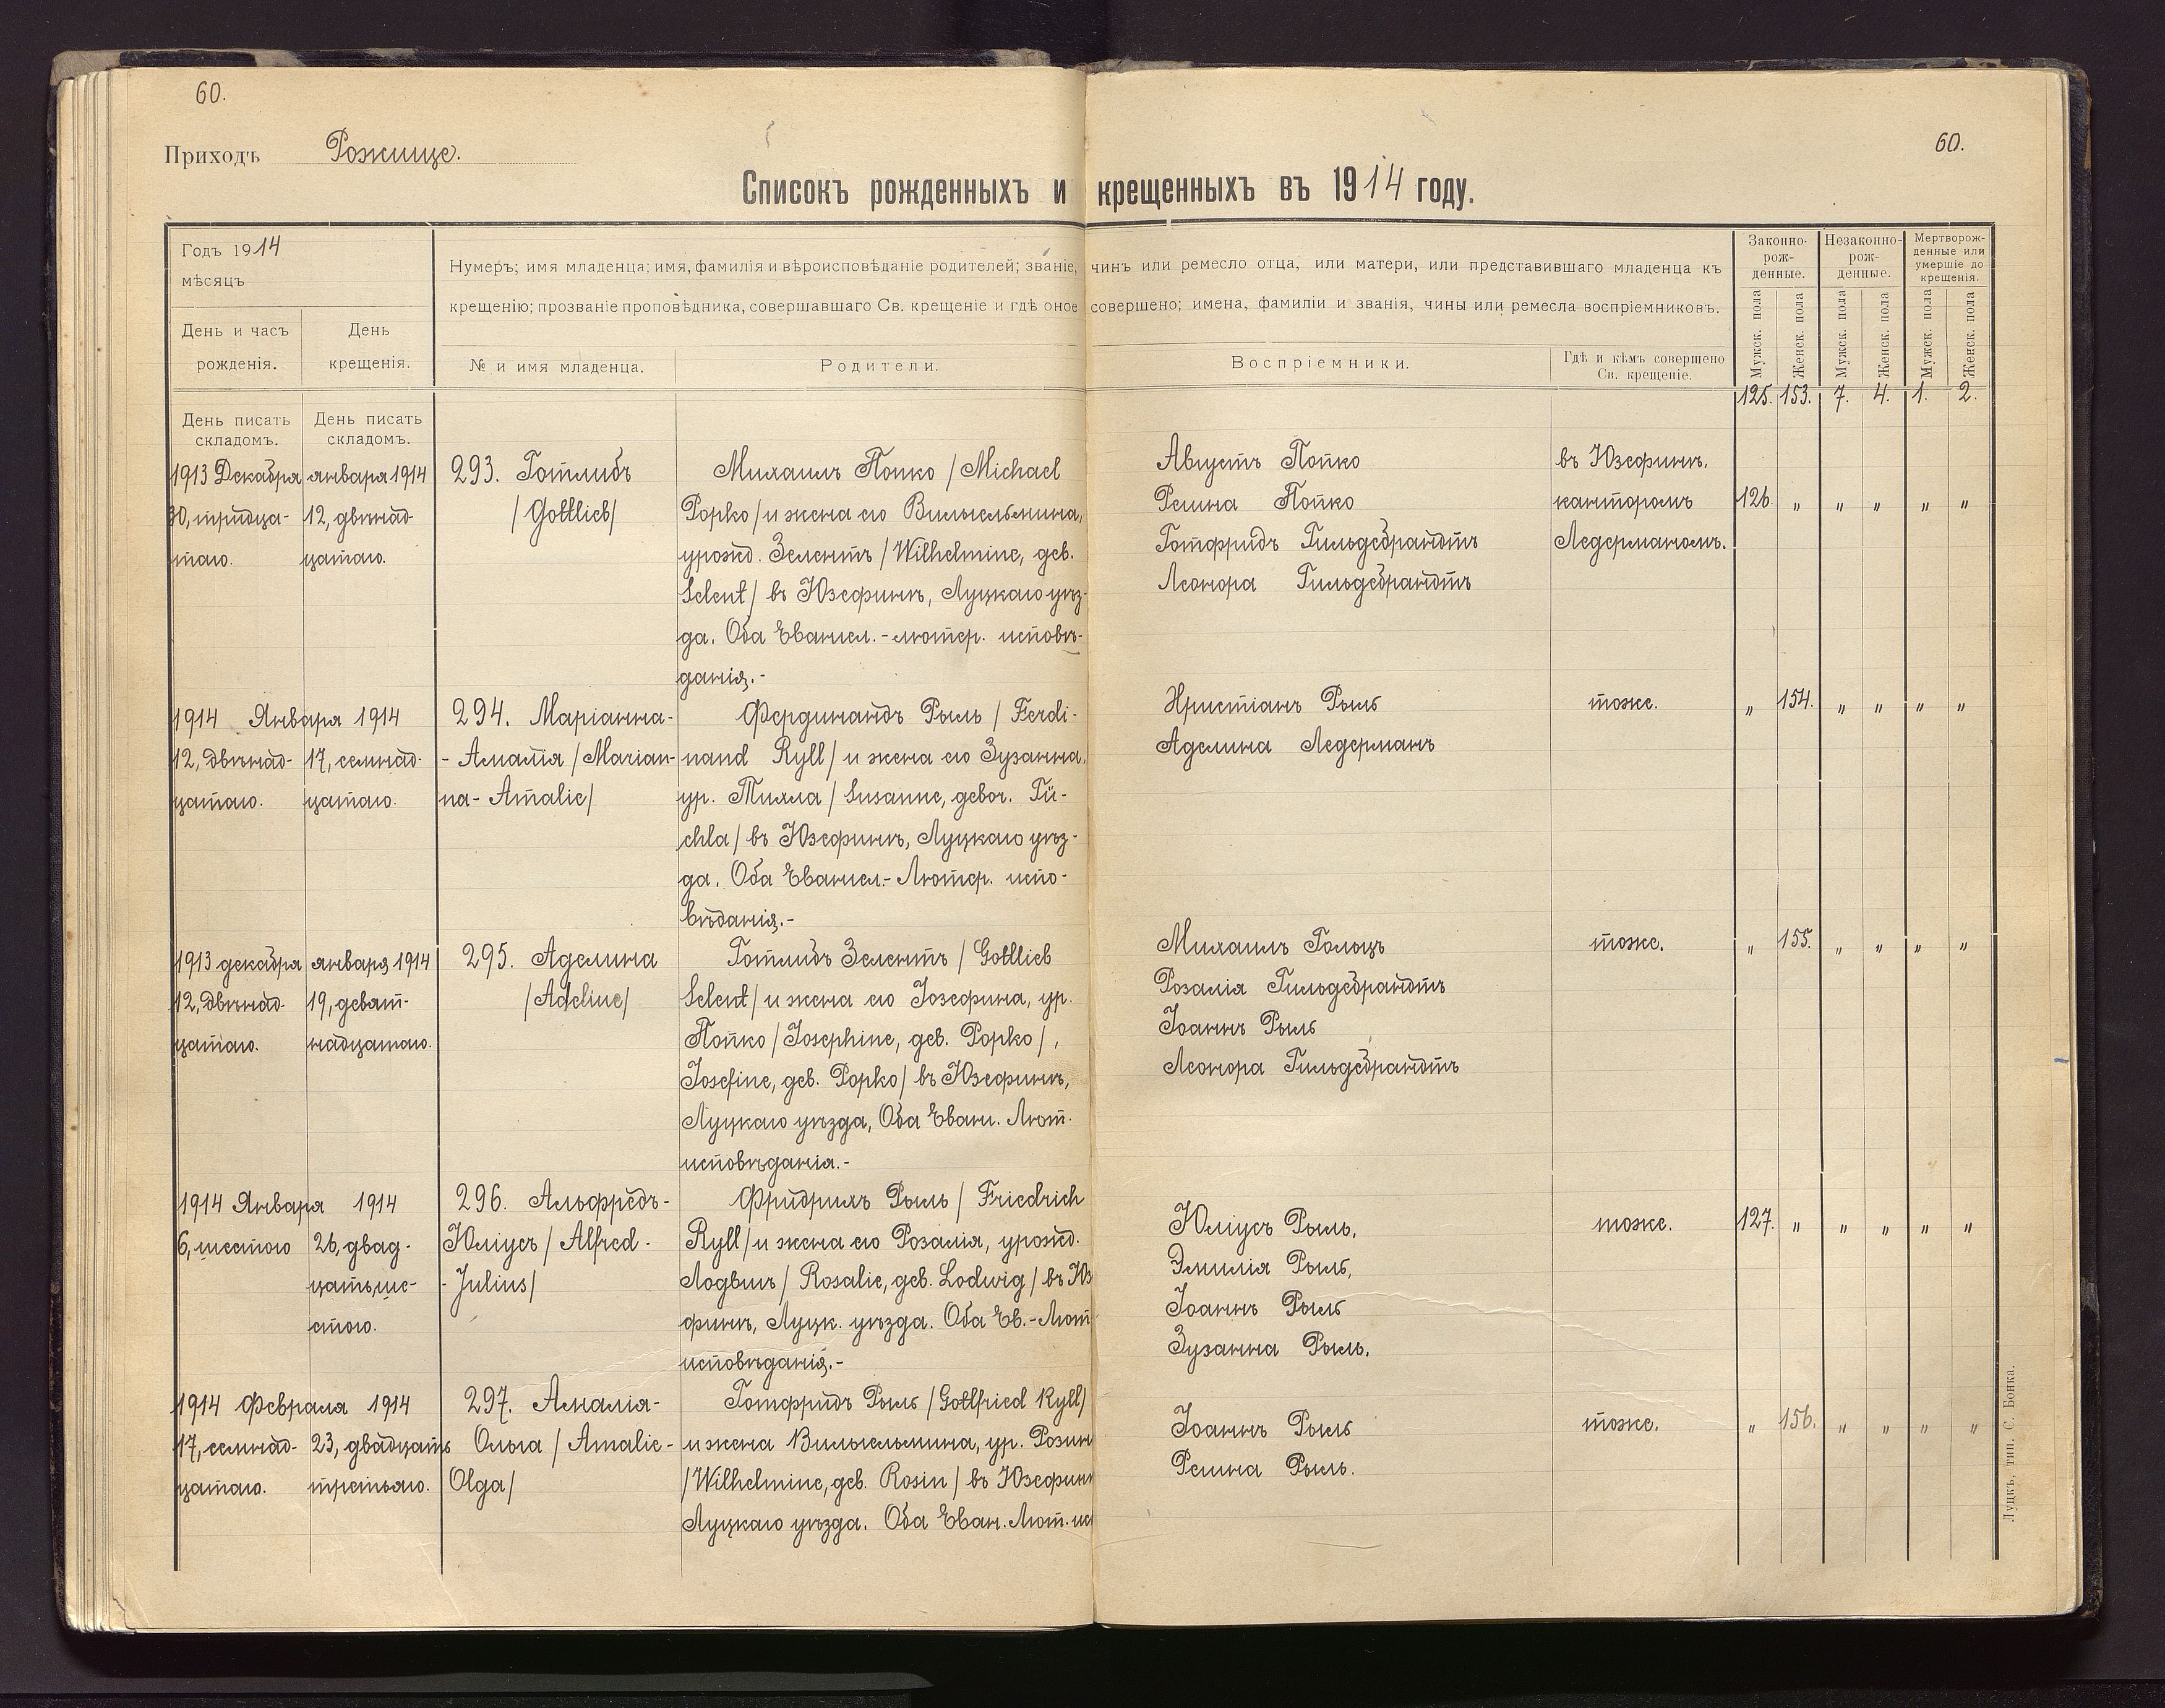 60.
60.
Приходъ Рожище.
Списокъ рожденныхъ и крещенныхъ въ 1914 году.
Годъ 1914
мѣсяцъ
День и часъ
рожденія.
День
крещенія.
Нумеръ; имя младенца; имя, фамилія и вѣроисповѣданіе родителей; званіе, чинъ или ремесло отца, или матери, или представившаго младенца къ
крещенію; прозваніе проповѣдника, совершавшаго Св. крещеніе и гдѣ оное совершено; имена, фамиліи и званія, чины или ремесла воспріемниковъ.
№ и имя младенца.
Родители.
Воспріемники.
Гдѣ и кѣмъ совершено
Св. крещеніе.
Законно-
рож-
денные.
Незаконно-
рож-
денные.
Мертворож-
денные или
умершіе до
крещенія.
Мужск. пола
Женск. пола
Мужск. пола
Женск. пола
Мужск. пола
Женск. пола
125. 153. 7. 4. 1. 2.
День писать
складомъ.
День писать
складомъ.
1913 Декабря
30, тридца-
таго.
января 1914
12, двѣнад-
цатаго.
293. Готлибъ
/Gottlieb/
Михаилъ Попко / Michael
Popko/ и жена его Вильгельмина,
урожд. Зелентъ / Wilhelmine, geb.
Selent/ въ Юзефинѣ, Луцкаго уѣз-
да. Оба Евангел.-лютер. исповѣ-
данія.-
Августъ Попко
Регина Попко
Готфридъ Гильдебрандтъ
Леонора Гильдебрандтъ
въ Юзефинѣ,
канторомъ
Ледерманомъ.
126. „ „ „ „ „
1914 Января 1914
12, двѣнад-
цатаго.
17, семнад-
цатаго.
294. Маріанна-
- Амалія / Marian-
na- Amalie/
Фердинандъ Рыль / Ferdi-
nand Ryll/ и жена его Зузанна,
ур. Тихла / Susanne, gebor. Tü-
chla/ въ Юзефинѣ, Луцкаго уѣз-
да. Оба Евангел.- Лютер. испо-
вѣданія.-
Христіанъ Рыль
Аделина Ледерманъ
тоже.
„ 154. „ „ „ „
1913 декабря
12, двѣнад-
цатаго.
января 1914
19, девят-
надцатаго.
295. Аделина
/Adeline/
Готлибъ Зелентъ / Gottlieb
Selent/ и жена его Іозефина, ур.
Попко / Josephine, geb. Popko/,
Josefine, geb. Popko/ въ Юзефинѣ,
Луцкаго уѣзда, Оба Еванг. Лют.
исповѣданія.-
Михаилъ Гольцъ
Розалія Гильдебрандтъ
Іоаннъ Рыль
Леонора Гильдебрандтъ
тоже.
„ 155. „ „ „ „
1914 Января 1914
6, шестого
26, двад-
цатьше-
стого.
296. Альфредъ-
Юліусъ / Alfred -
- Julius/
Фридрихъ Рыль / Friedrich
Ryll/ и жена его Розалія, урожд.
Лодвигъ / Rosalie, geb. Lodwig / въ Юз
финѣ, Луцк. уѣзда. Оба Ев.-Лют
исповѣданія.-
Юліусъ Рыль,
Эмилія Рыль,
Іоаннъ Рыль
Зузанна Рыль.
тоже.
127. „ „ „ „ „
1914 Февраля 1914
17, семнад-
цатаго.
23, двадцать
третьяго.
297. Амалія-
Ольга / Amalie-
Olga/
Готфридъ Рыль / Gottfried Ryll/
и жена Вильгельмина, ур. Розин
/ Wilhelmine, geb. Rosin / въ Юзефин
Луцкаго уѣзда. Оба Еван. Лют. ис
Іоаннъ Рыль
Регина Рыль.
тоже.
„ 156. „ „ „ „
Луцкъ, тип. С. Бонка.